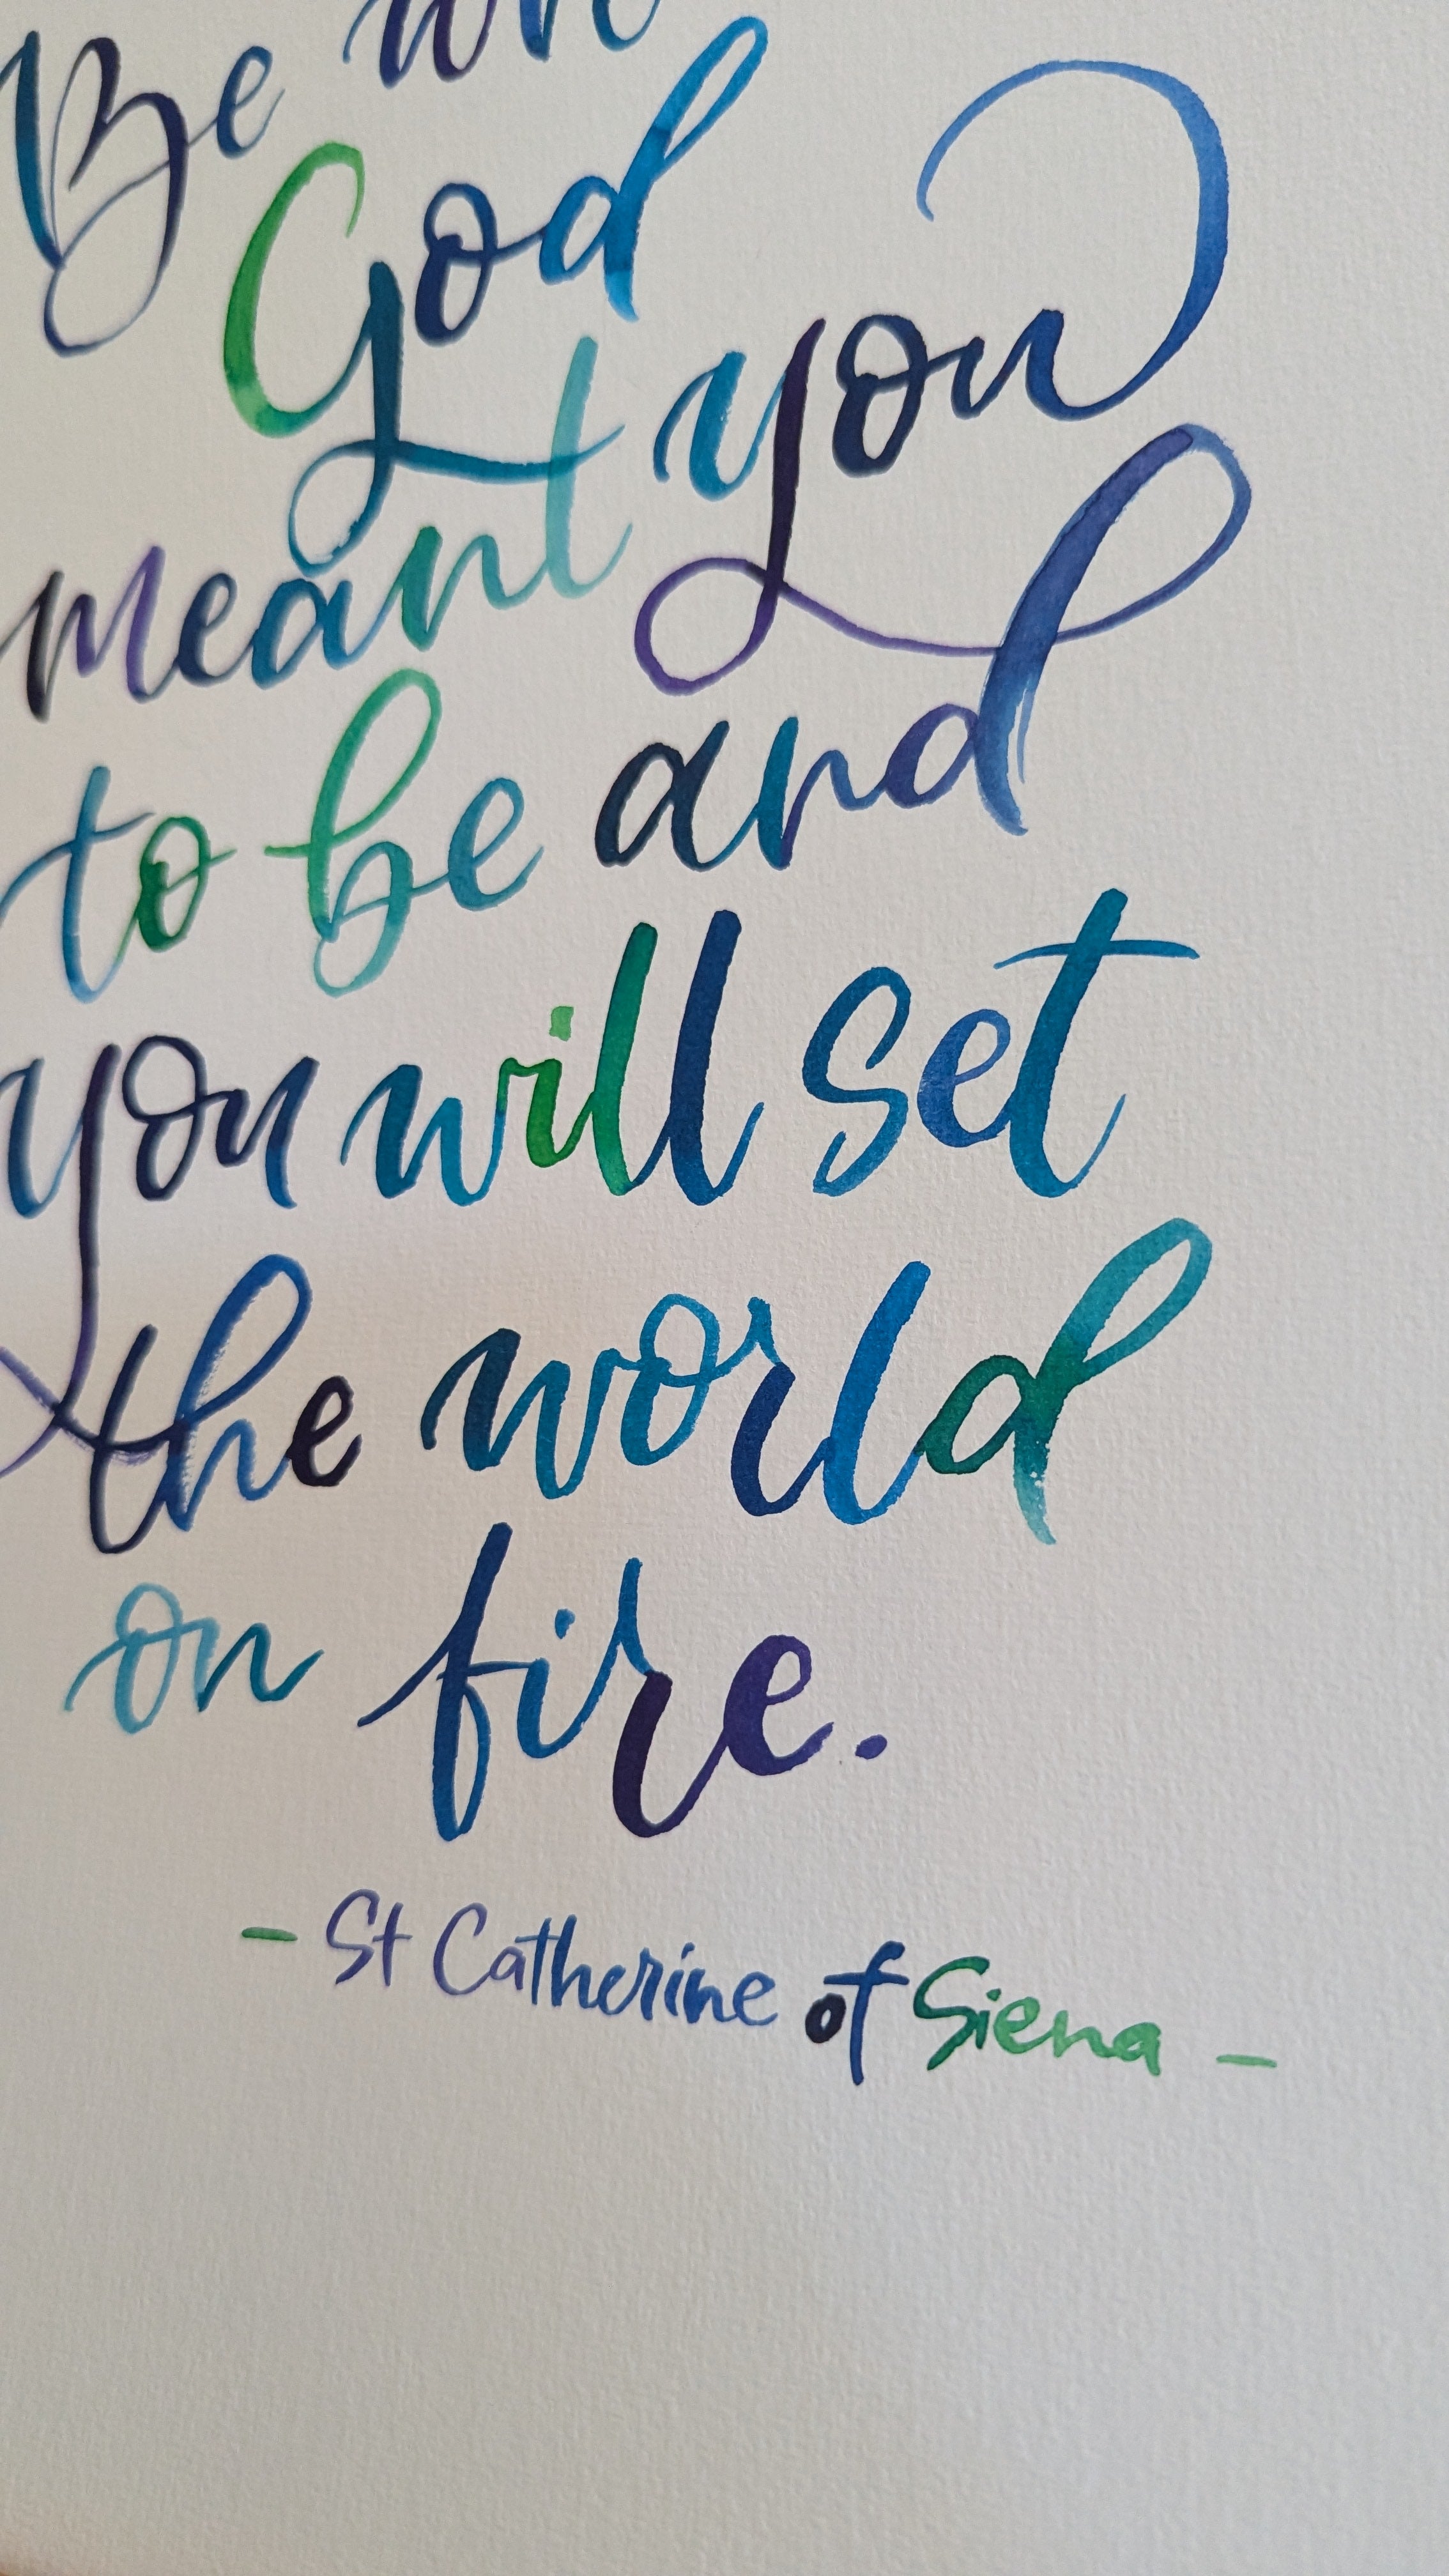 Be
God
meant you
to be and
you will set
the world
on fire.
- St Catherine of Siena -